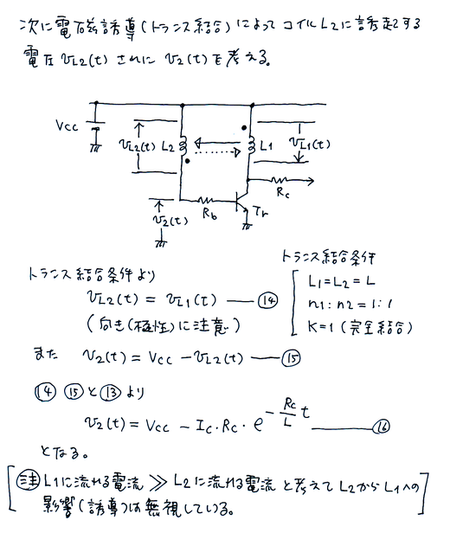 次に電磁誘導(トランス結合)によってコイルL2に誘起する
電圧 VL2(t) さらに V2(t)を考える。
Vcc
VL2(t)
L2
L1
VL1(t)
Rc
V2(t)
Rb
Tr
トランス結合条件より
VL2(t) = VL1(t) — ⑭
(向き(極性)に注意)
トランス結合条件
L1=L2=L
n1:n2=1:1
K=1(完全結合)
また V2(t) = Vcc - VL2(t) — ⑮
⑭ ⑮と⑬より
V2(t) = Vcc - Ic・Rc・e^{-\frac{Rc}{L}t} — ⑯
となる。
[㊟ L1に流れる電流 ≫ L2に流れる電流 と考えてL2からL1への
影響(誘導)は無視している。]